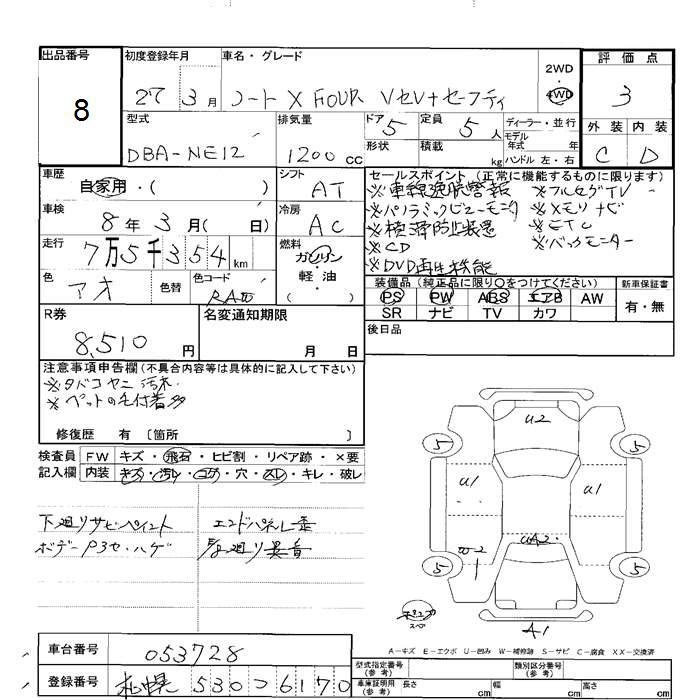 出品番号
8
初度登録年月
27 3月
車名・グレード
ノート X FOUR Vセレ+セーフティ
2WD
・
4WD
評価点
3
外装 内装
C D
型式
DBA-NE12
排気量
1200cc
ドア 5
形状
定員 5人
積載 kg
ディーラー・並行
モデル年式 年
ハンドル 左・右
車歴
自家用・( )
シフト
AT
車検
8年 3月( 日)
冷房
AC
走行
7万5千354km
燃料
ガソリン
軽・油
色
アオ
色替
色コード
RAW
セールスポイント (正常に機能するものに限ります)
※車線逸脱警報 ※フルセグTV
※パノラミックビューモニタ ※メモリナビ
※横滑防止装置 ※ETC
※CD ※バックモニター
※DVD再生機能
装備品 (純正品に限り○をつけてください)
PS PW ABS エアB AW
SR ナビ TV カワ
新車保証書
有・無
後日品
R券
8,510円
名変通知期限
月 日
注意事項申告欄(不具合内容等は具体的に記入して下さい)
※タバコヤニ汚れ
※ペットの毛付着多
修復歴 有 〔箇所 〕
検査員記入欄
FW キズ・飛石・ヒビ割・リペア跡・×要
内装 キズ・汚レ・コゲ・穴・スレ・キレ・破レ
下廻りサビペイント エンドパネル歪
ボデーP3セ・ハゲ 異音
U2
5 5
U1 U1
W2
UA2
5 5
スペア
A1
A-キズ E-エクボ U-凹み W-補修跡 S-サビ C-腐食 XX-交換済
車台番号
053728
登録番号
札幌 530つ6170
型式指定番号(参考)
類別区分番号(参考)
車庫証明用(参考) 長さ cm 幅 cm 高さ cm